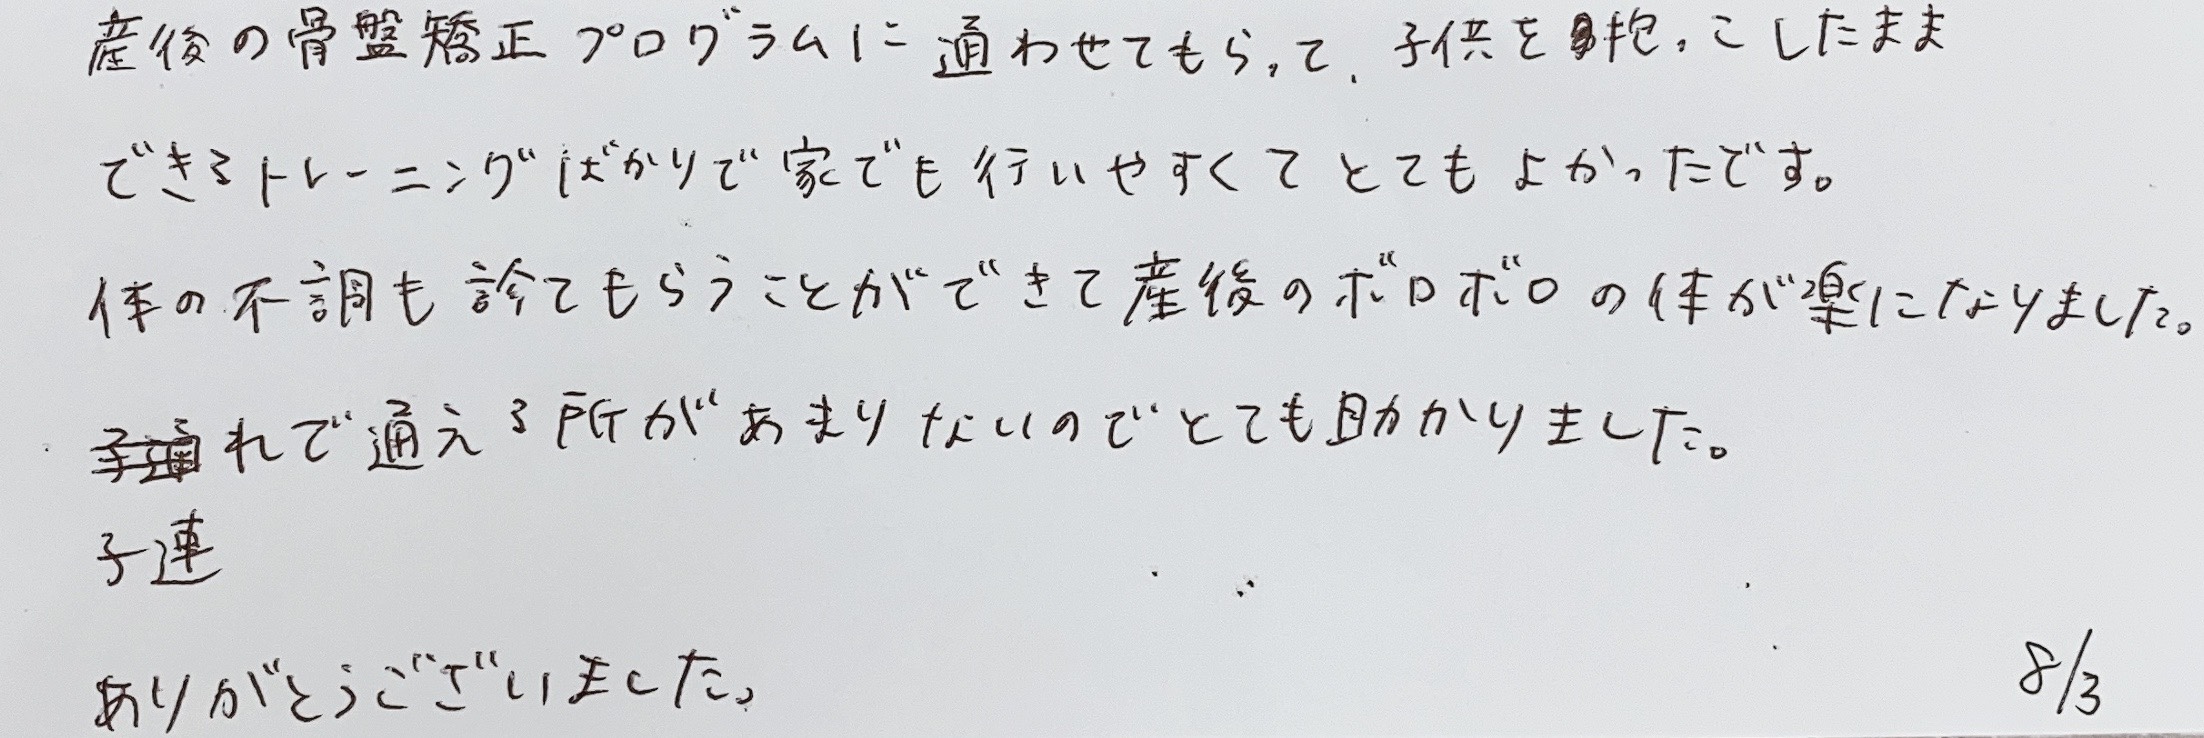 産後の骨盤矯正プログラムに通わせてもらって、子供を抱っこしたまま
できるトレーニングばかりで家でも行いやすくてとてもよかったです。
体の不調も診てもらうことができて産後のボロボロの体が楽になりました。
子通れで通える所があまりないのでとても助かりました。
子連
ありがとうございました。
8/3